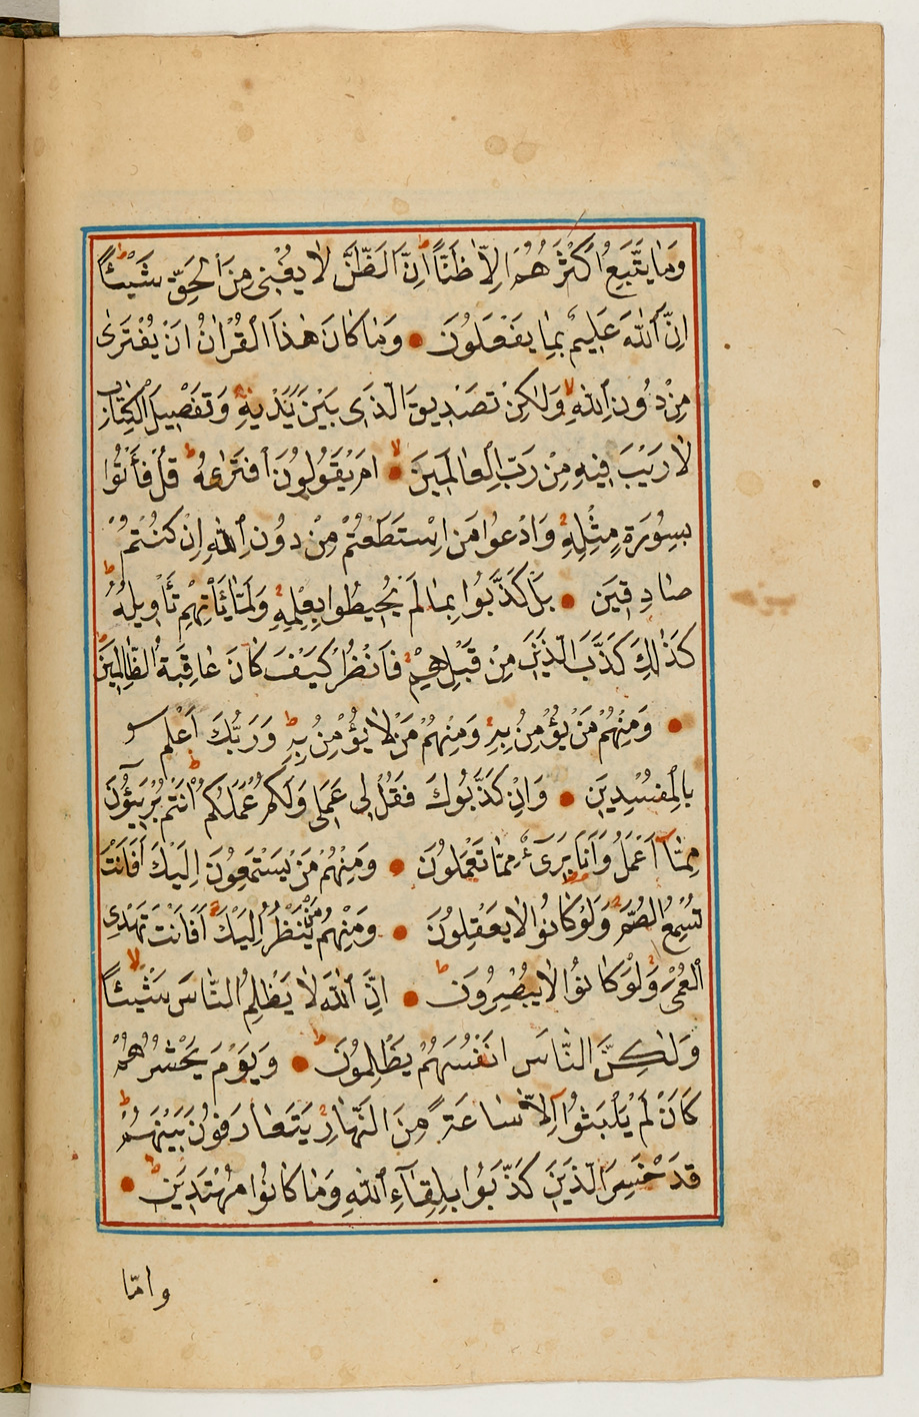 وَمَا يَتَّبِعُ اَكْثَرُهُمْ اِلَّا ظَنًّا اِنَّ الظَّنَّ لَا يُغْنِى مِنَ الْحَقِّ شَيْـًٔا
اِنَّ اللّٰهَ عَلِيمٌ بِمَا يَفْعَلُونَ ● وَمَا كَانَ هٰذَا الْقُرْاٰنُ اَنْ يُفْتَرٰى
مِنْ دُونِ اللّٰهِ وَلٰكِنْ تَصْدِيقَ الَّذِى بَيْنَ يَدَيْهِ وَتَفْصِيلَ الْكِتَابِ
لَا رَيْبَ فِيهِ مِنْ رَبِّ الْعَالَمِينَ ● اَمْ يَقُولُونَ افْتَرٰيهُ قُلْ فَأْتُوا
بِسُورَةٍ مِثْلِهِ وَادْعُوا مَنِ اسْتَطَعْتُمْ مِنْ دُونِ اللّٰهِ اِنْ كُنْتُمْ
صَادِقِينَ ● بَلْ كَذَّبُوا بِمَا لَمْ يُحِيطُوا بِعِلْمِهِ وَلَمَّا يَأْتِهِمْ تَأْوِيلُهُ
كَذٰلِكَ كَذَّبَ الَّذِينَ مِنْ قَبْلِهِمْ فَانْظُرْ كَيْفَ كَانَ عَاقِبَةُ الظَّالِمِينَ
● وَمِنْهُمْ مَنْ يُؤْمِنُ بِهِ وَمِنْهُمْ مَنْ لَا يُؤْمِنُ بِهِ وَرَبُّكَ اَعْلَمُ
بِالْمُفْسِدِينَ ● وَاِنْ كَذَّبُوكَ فَقُلْ لِى عَمَلِى وَلَكُمْ عَمَلُكُمْ اَنْتُمْ بَرِيٓـؤُنَ
مِمَّا اَعْمَلُ وَاَنَا بَرِىءٌ مِمَّا تَعْمَلُونَ ● وَمِنْهُمْ مَنْ يَسْتَمِعُونَ اِلَيْكَ اَفَاَنْتَ
تُسْمِعُ الصُّمَّ وَلَوْ كَانُوا لَا يَعْقِلُونَ ● وَمِنْهُمْ مَنْ يَنْظُرُ اِلَيْكَ اَفَاَنْتَ تَهْدِى
الْعُمْىَ وَلَوْ كَانُوا لَا يُبْصِرُونَ ● اِنَّ اللّٰهَ لَا يَظْلِمُ النَّاسَ شَيْـًٔا
وَلٰكِنَّ النَّاسَ اَنْفُسَهُمْ يَظْلِمُونَ ● وَيَوْمَ يَحْشُرُهُمْ
كَاَنْ لَمْ يَلْبَثُوا اِلَّا سَاعَةً مِنَ النَّهَارِ يَتَعَارَفُونَ بَيْنَهُمْ
قَدْ خَسِرَ الَّذِينَ كَذَّبُوا بِلِقَاءِ اللّٰهِ وَمَا كَانُوا مُهْتَدِينَ ●
وامّا